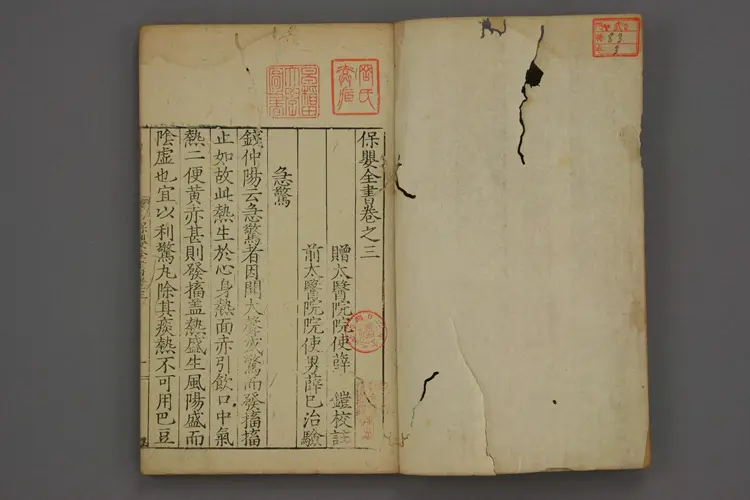 保嬰全書卷之三
贈太醫院院使薛 鎧校註
前太醫院院使男薛已治驗
急驚
錢仲陽云急驚者因聞大聲或驚而發搐搐
止如故此熱生於心身熱面赤引飲口中氣
熱二便黃赤甚則發搐蓋熱盛生風陽盛而
陰虛也宜以利驚丸除其痰熱不可用巴豆